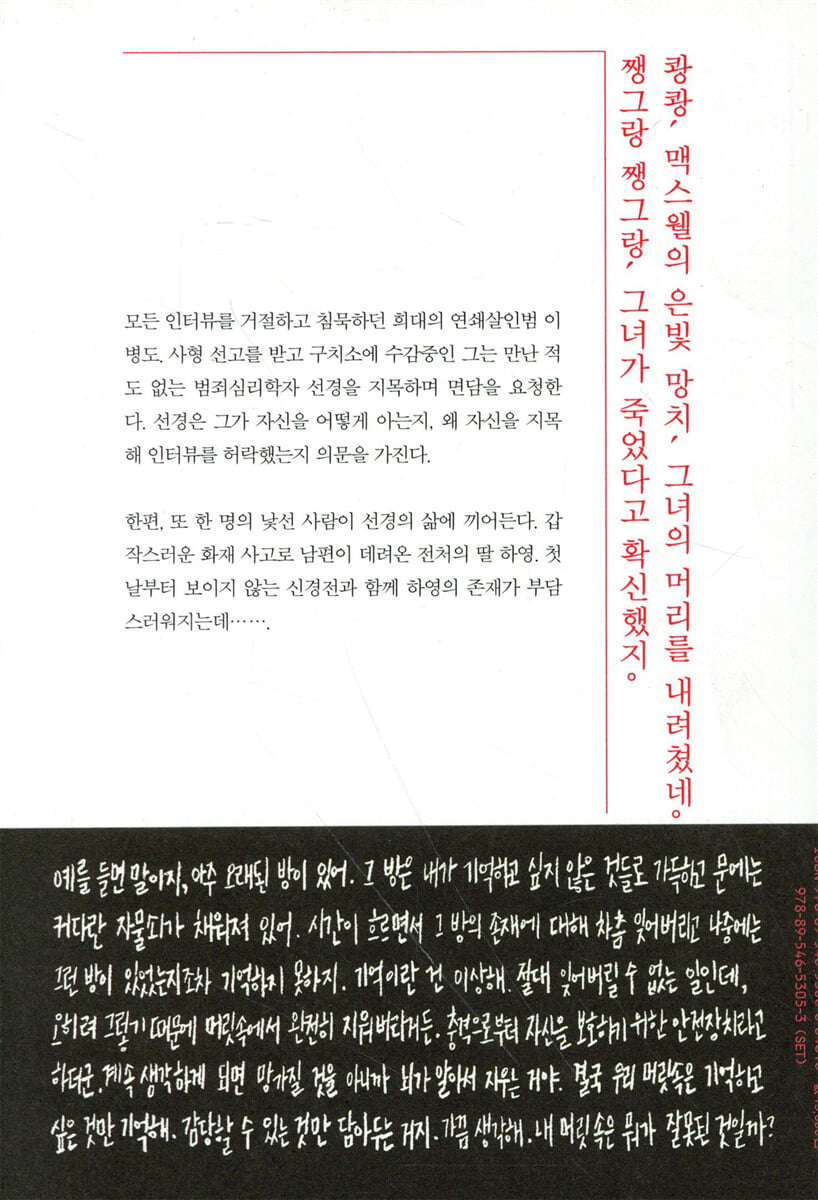 쾅쾅, 맥스웰의 은빛 망치, 그녀의 머리를 내려쳤네。
쨍그랑 쨍그랑, 그녀가 죽었다고 확신했지。
모든 인터뷰를 거절하고 침묵하던 희대의 연쇄살인범 이
병도. 사형 선고를 받고 구치소에 수감중인 그는 만난 적
도 없는 범죄심리학자 선경을 지목하며 면담을 요청한
다. 선경은 그가 자신을 어떻게 아는지, 왜 자신을 지목
해 인터뷰를 허락했는지 의문을 가진다.
한편, 또 한 명의 낯선 사람이 선경의 삶에 끼어든다. 갑
작스러운 화재 사고로 남편이 데려온 전처의 딸 하영. 첫
날부터 보이지 않는 신경전과 함께 하영의 존재가 부담
스러워지는데…….
예를 들면 말이지, 아주 오래된 방이 있어. 그 방은 내가 기억하고 싶지 않은 것들로 가득하고 문에는
커다란 자물쇠가 채워져 있어. 시간이 흐르면서 그 방의 존재에 대해 차츰 잊어버리고 나중에는
그런 방이 있었는지조차 기억하지 못하지. 기억이란 건 이상해. 절대 잊어버릴 수 없는 일인데,
오히려 그렇기 때문에 머릿속에서 완전히 지워버리거든. 충격으로부터 자신을 보호하기 위한 안전장치라고
하더군. 계속 생각하게 되면 망가질 것을 아니까 뇌가 알아서 지우는 거야. 결국 우리 머릿속은 기억하고
싶은 것만 기억해. 감당할 수 있는 것만 담아두는 거지. 가끔 생각해. 내 머릿속은 뭐가 잘못된 것일까?
978-89-546-5305-3 (SET)